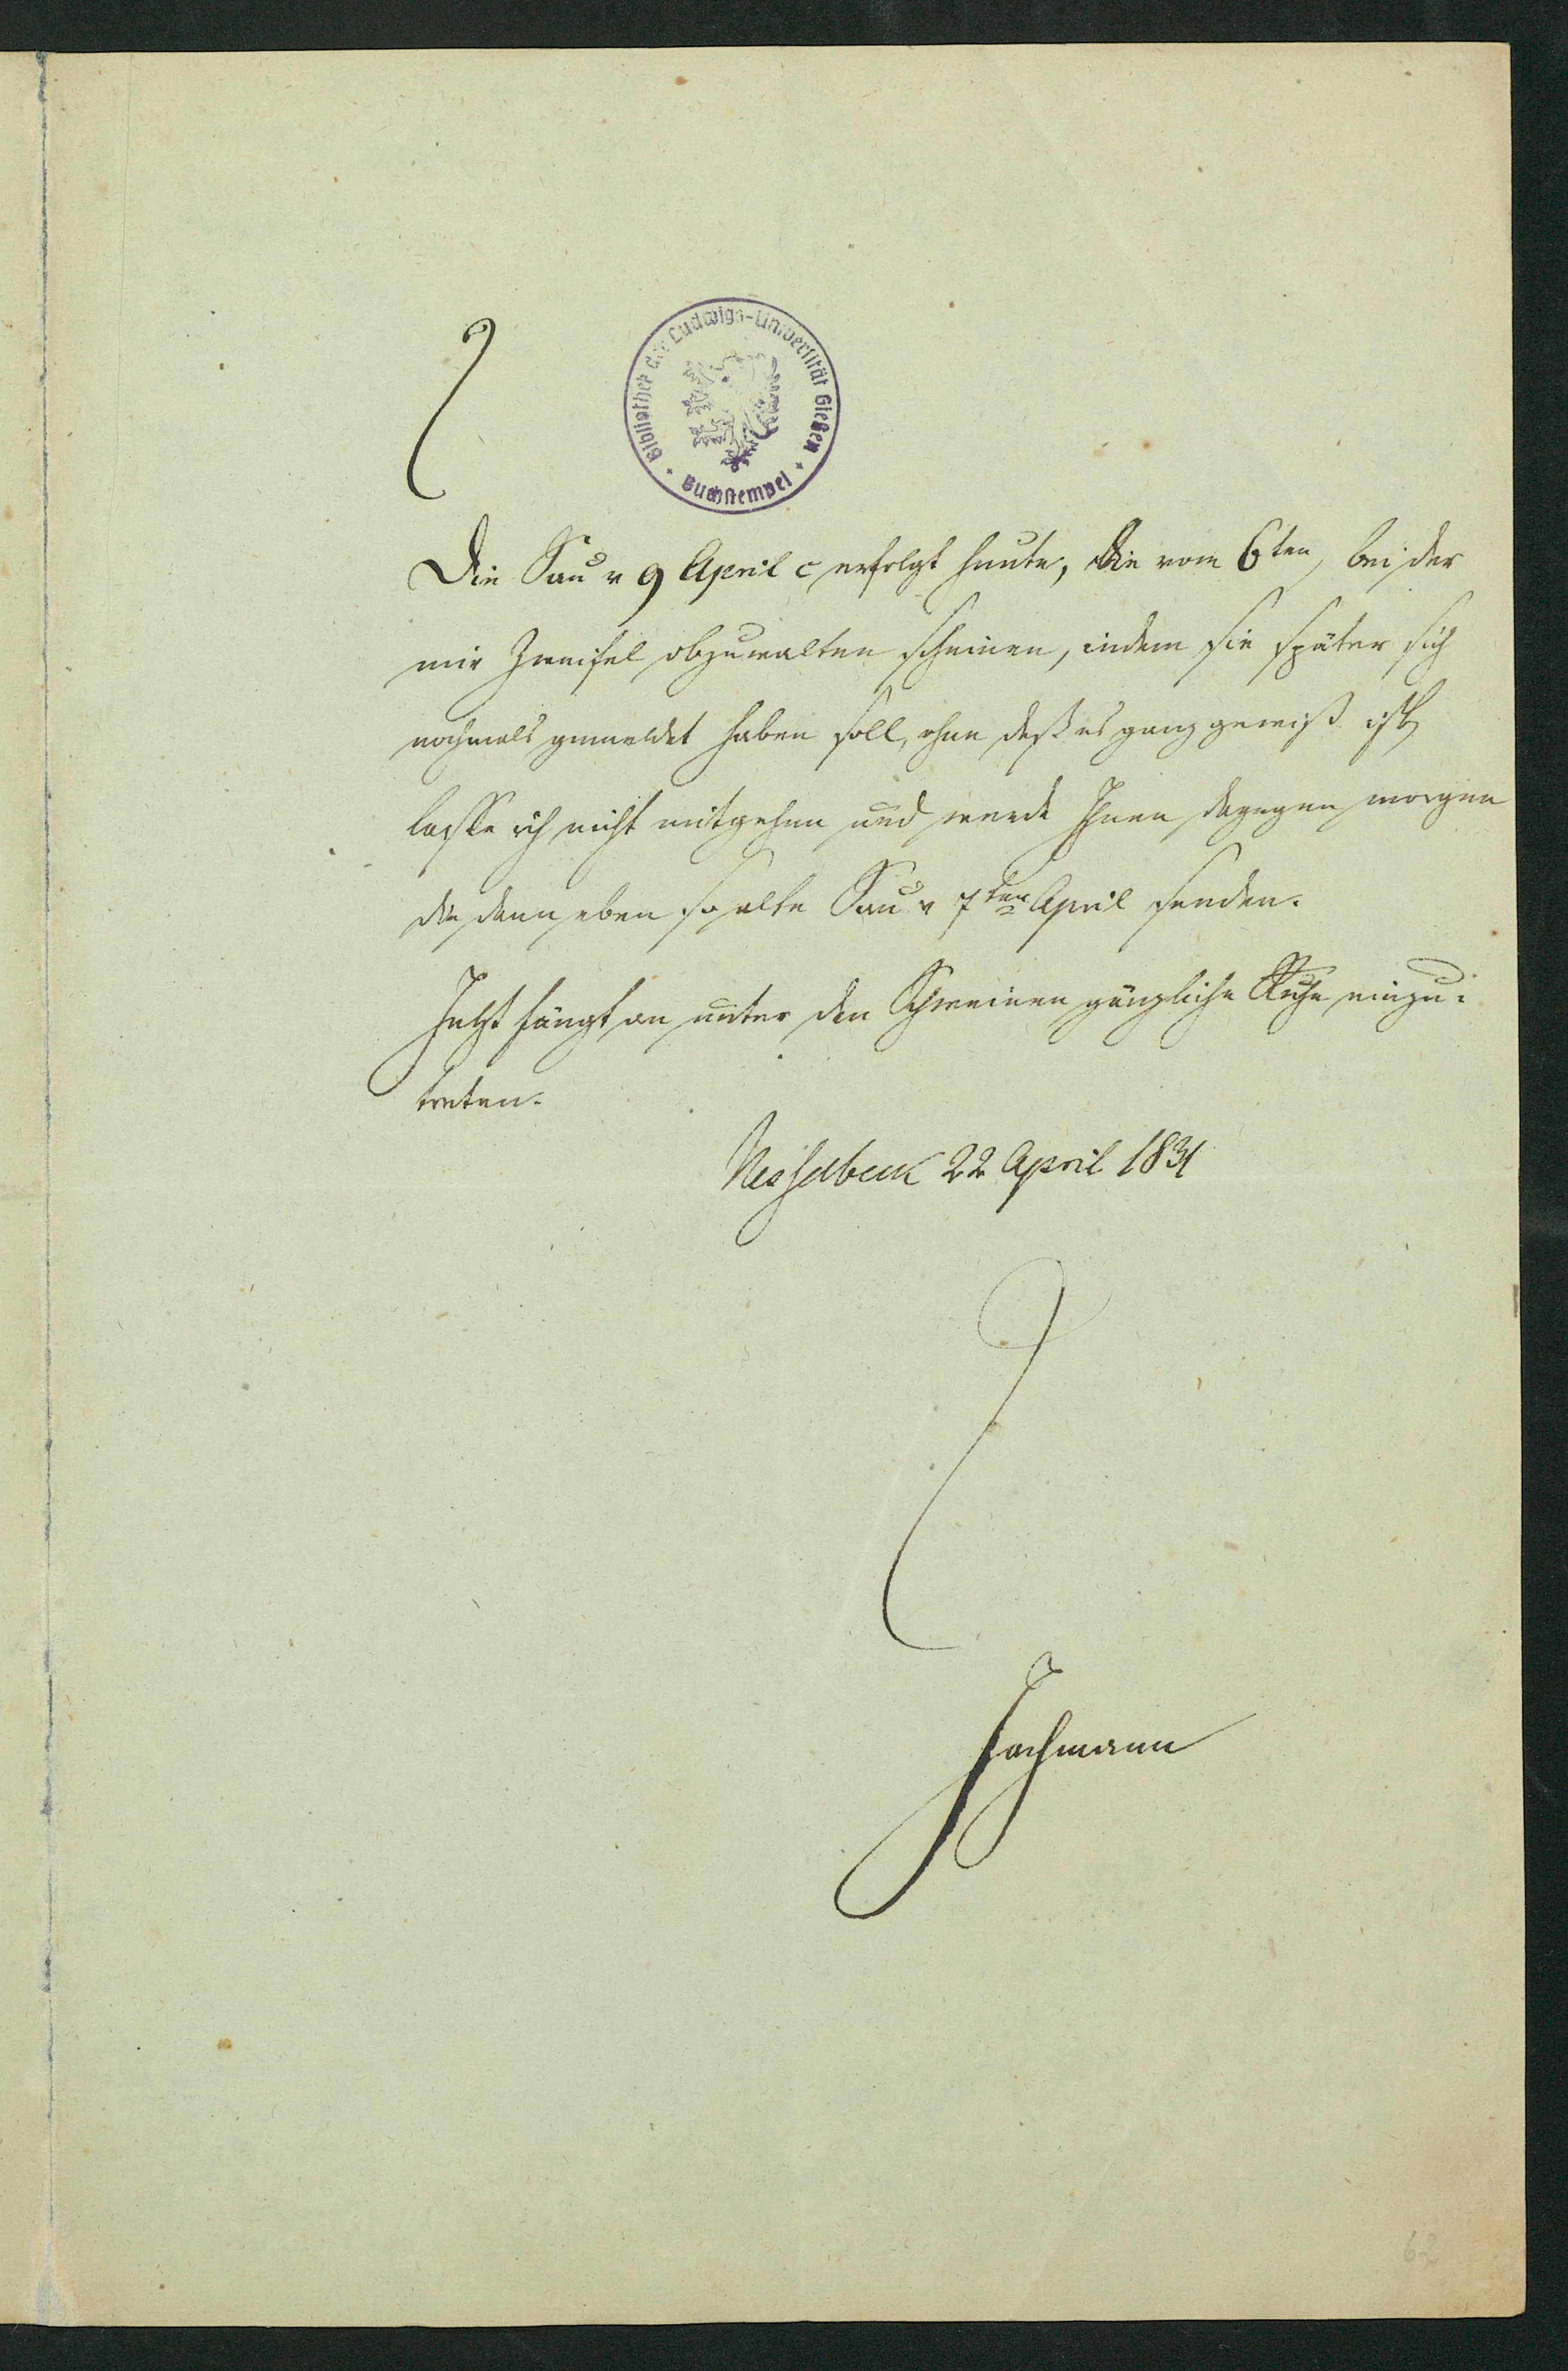 Bibliothek der Ludwigs-Universität Gießen
Buchstempel
Die Sau v 9 April c erfolgt heute, die vom 6ten, bei der
mir Zweifel obzuwalten scheinen, indem sie später sich
nochmals gemeldet haben soll, ohne daß es ganz gewiß ist,
lasse ich nicht mitgehen und werde Ihnen dagegen morgen
die dann eben so alte Sau v 7ten April senden.
Jetzt fängt an unter den Schweinen gänzliche Ruhe einzu-
treten.
Nesselbeck 22 April 1831
Jachmann
62